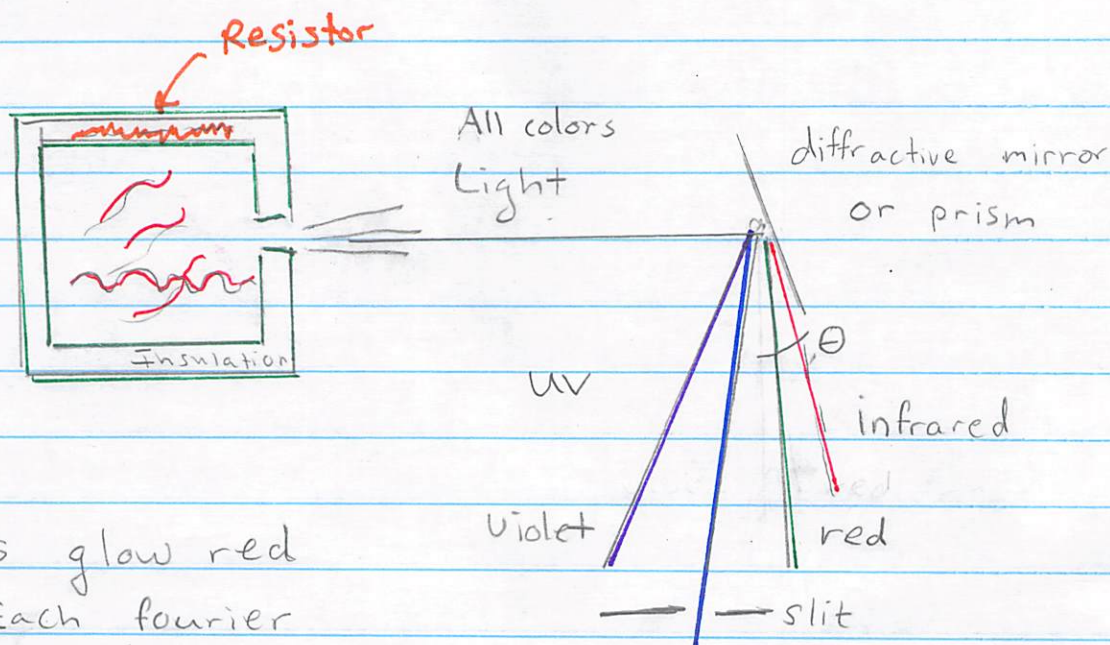 Resistor
All colors
Light
diffractive mirror
or prism
Insulation
θ
UV
infrared
Violet
red
s glow red
slit
Each fourier